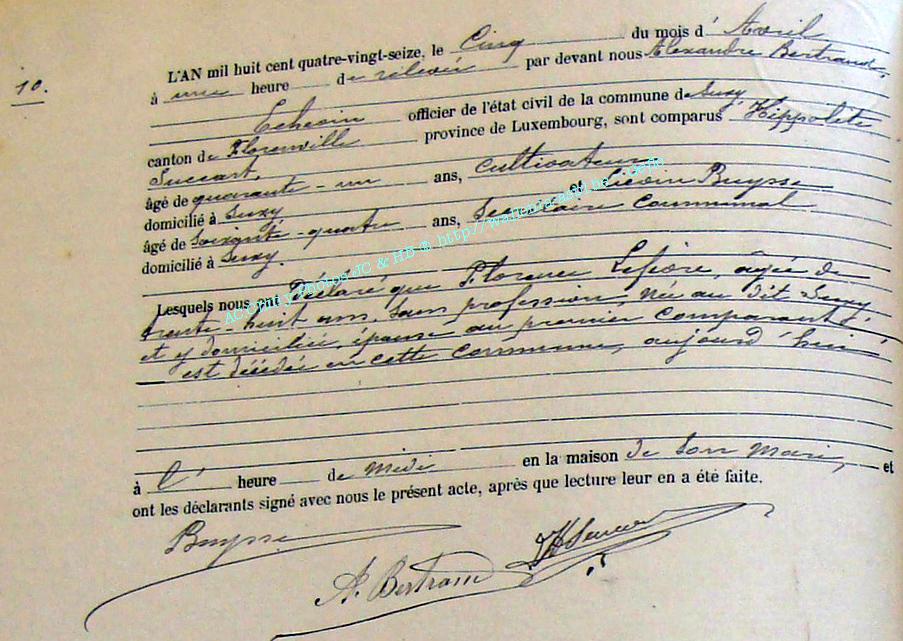 10.
L'AN mil huit cent quatre-vingt-seize, le Cinq du mois d' Avril
à une heure de relevée par devant nous Alexandre Bertrand,
Echevin officier de l'état civil de la commune de Suxy,
canton de Florenville province de Luxembourg, sont comparus Hippolite
Succart,
âgé de quarante-un ans, Cultivateur
domicilié à Suxy et Buysse
âgé de Soixante-quatre ans, Secrétaire Communal
domicilié à Suxy.
Lesquels nous ont Déclaré que Florence Lefèvre, âgée de
trente huit ans, sans profession, née au dit Suxy
et y domiciliée, épouse au premier comparant
est décédée en cette commune, aujourd'hui
à l' heure de midi en la maison de son mari, et
ont les déclarants signé avec nous le présent acte, après que lecture leur en a été faite.
Buysse
A. Bertrand